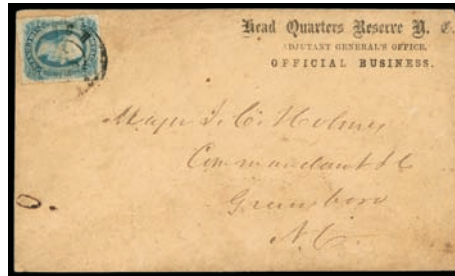 Head Quarters Reserve N. C.
ADJUTANT GENERAL'S OFFICE,
OFFICIAL BUSINESS.
Major J. C. Holmes
Commandant &c
Greensboro
N.C.